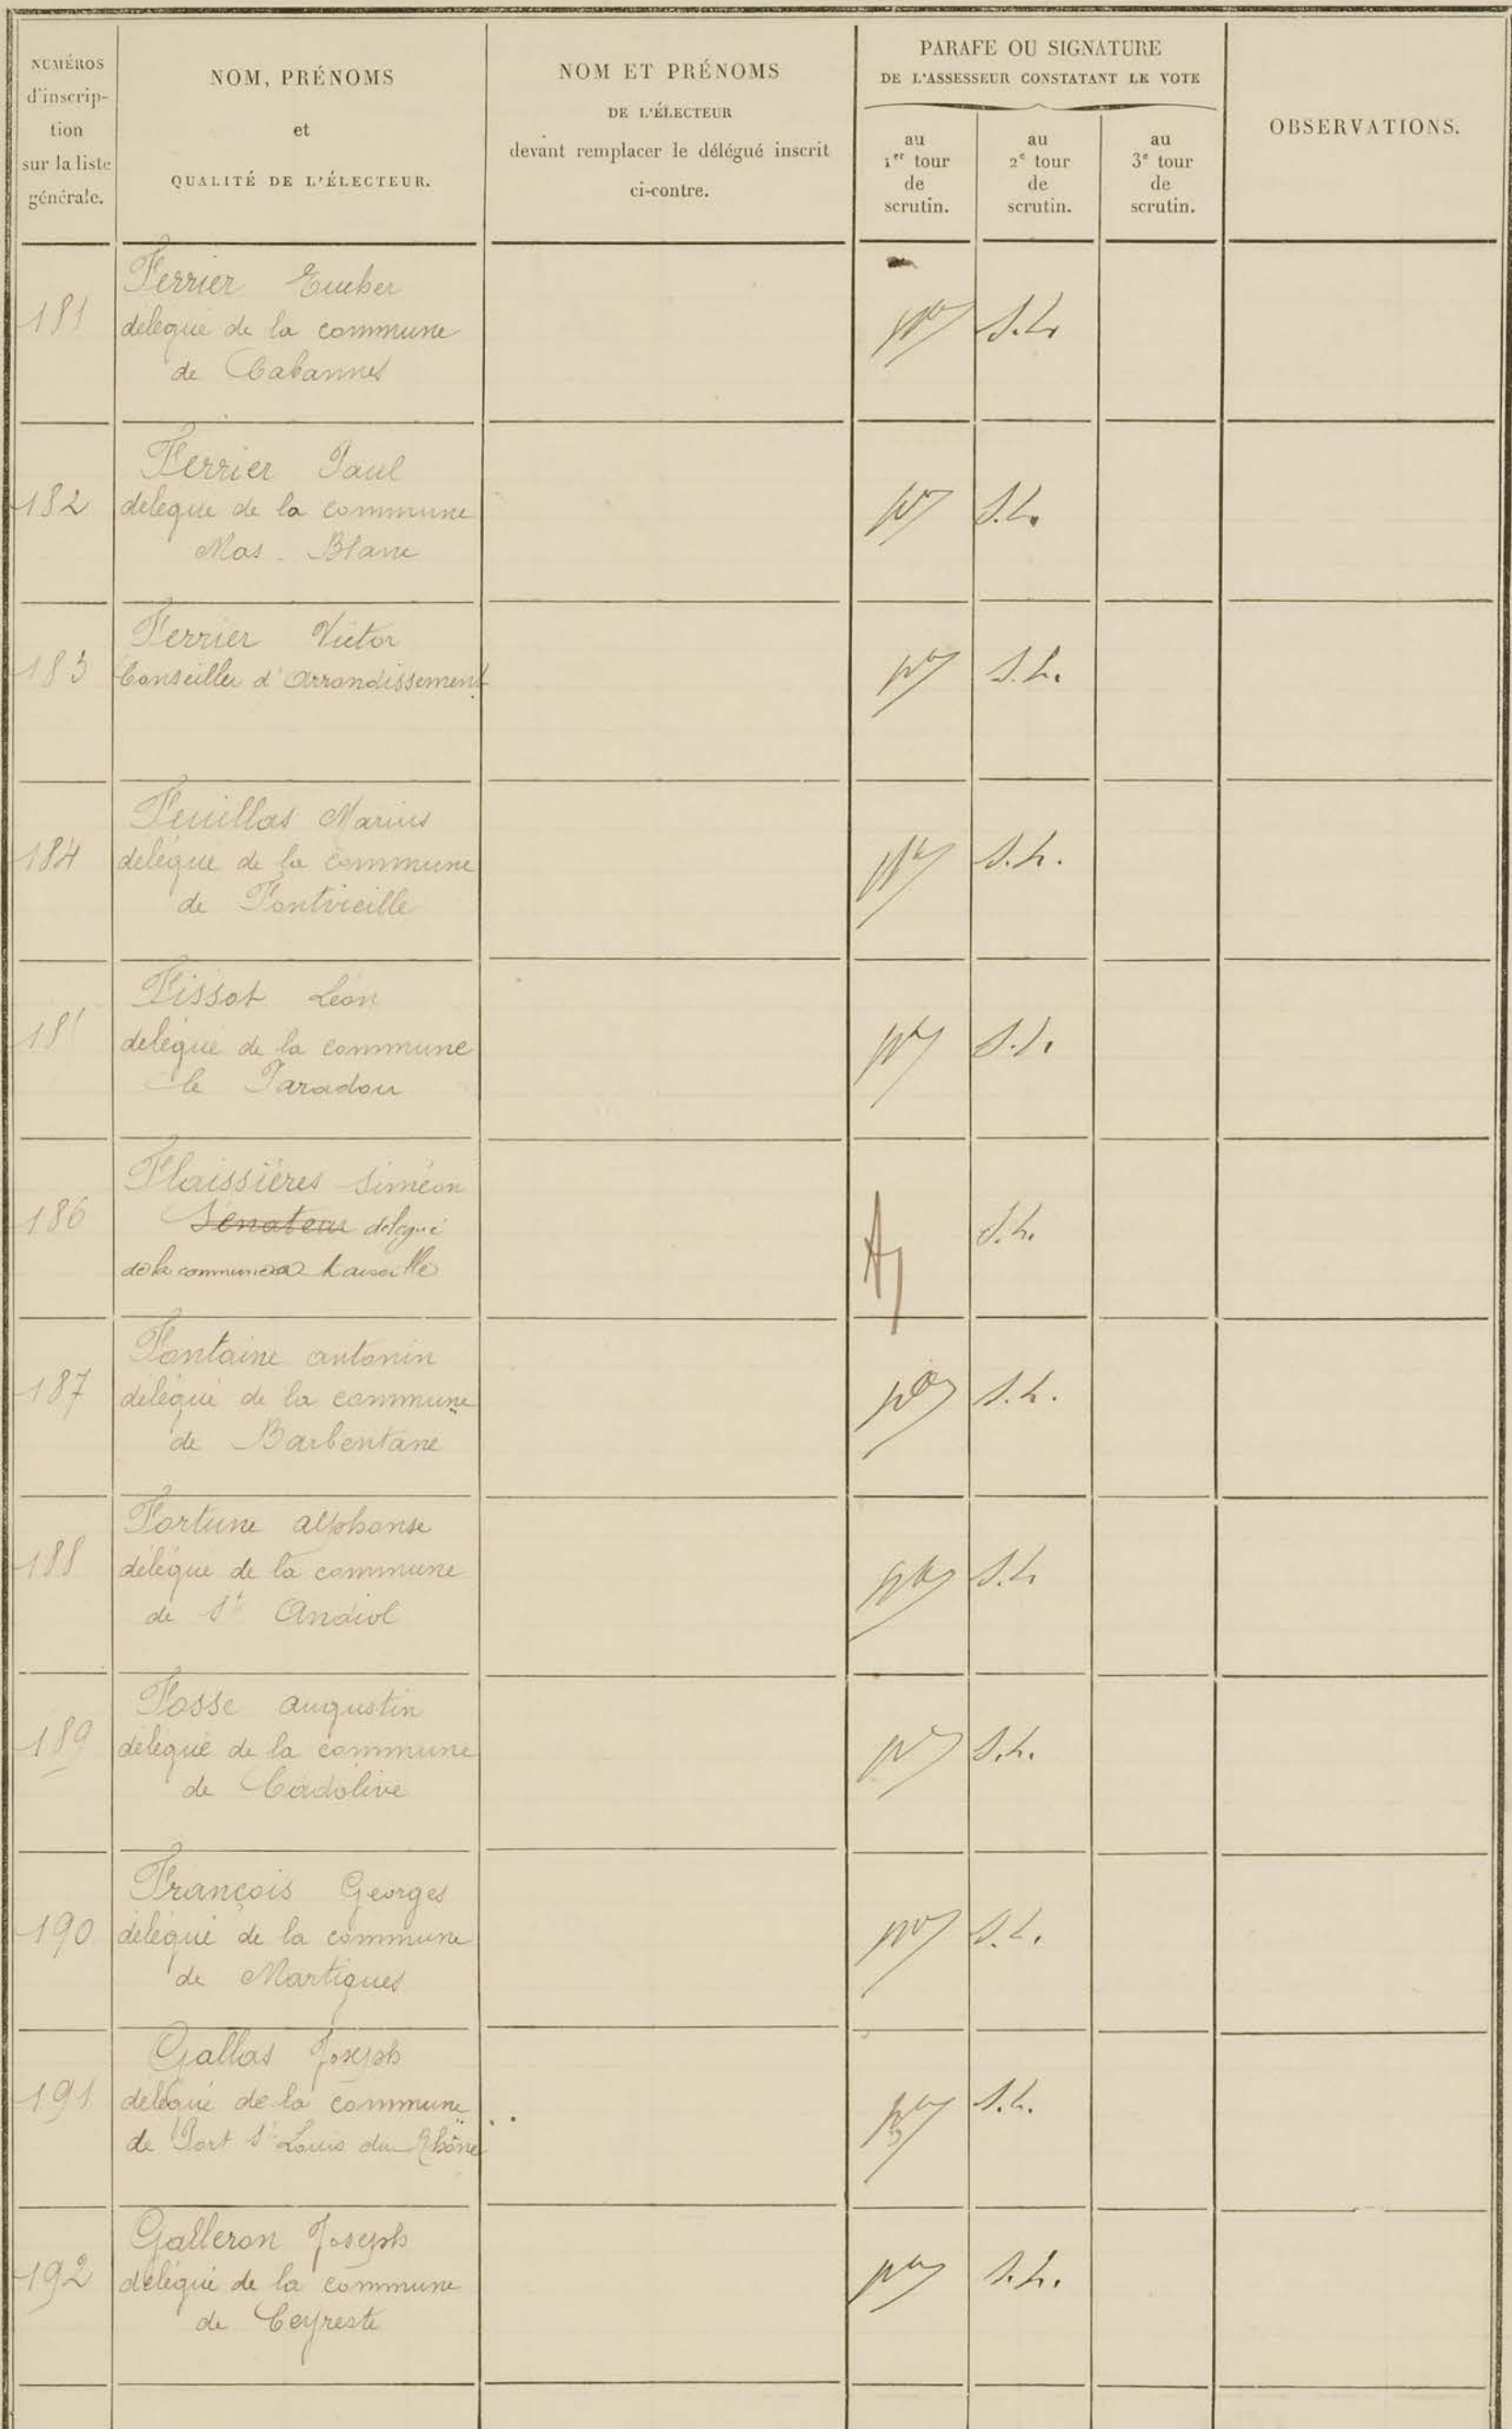 NUMÉROS
d'inscrip-
tion
sur la liste
générale.
NOM, PRÉNOMS
et
QUALITÉ DE L'ÉLECTEUR.
NOM ET PRÉNOMS
DE L'ÉLECTEUR
devant remplacer le délégué inscrit
ci-contre.
PARAFE OU SIGNATURE
DE L'ASSESSEUR CONSTATANT LE VOTE
au
1er tour
de
scrutin.
au
2e tour
de
scrutin.
au
3e tour
de
scrutin.
OBSERVATIONS.
Ferrier Eucher
181 délégué de la commune S.L.
de Cabannes
Ferrier Paul
182 délégué de la commune S.L.
Mas-Blanc
Ferrier Victor
183 Conseiller d'Arrondissement S.L.
Feuillas Marius
184 délégué de la commune S.L.
de Fontvieille
Fissot Léon
délégué de la commune S.L.
le Paradou
Flaissières Siméon
186 Sénateur délégué S.L.
de la commune de Marseille
Fontaine antonin
187 délégué de la commune S.L.
de Barbentane
Fortune alphonse
188 délégué de la commune S.L.
de St Andiol
Fosse augustin
189 délégué de la commune S.L.
de Cadolive
François Georges
190 délégué de la commune S.L.
de Martigues
Gallas Joseph
191 délégué de la commune S.L.
de Port St Louis du Rhône
Galleron Joseph
192 délégué de la commune S.L.
de Ceyreste